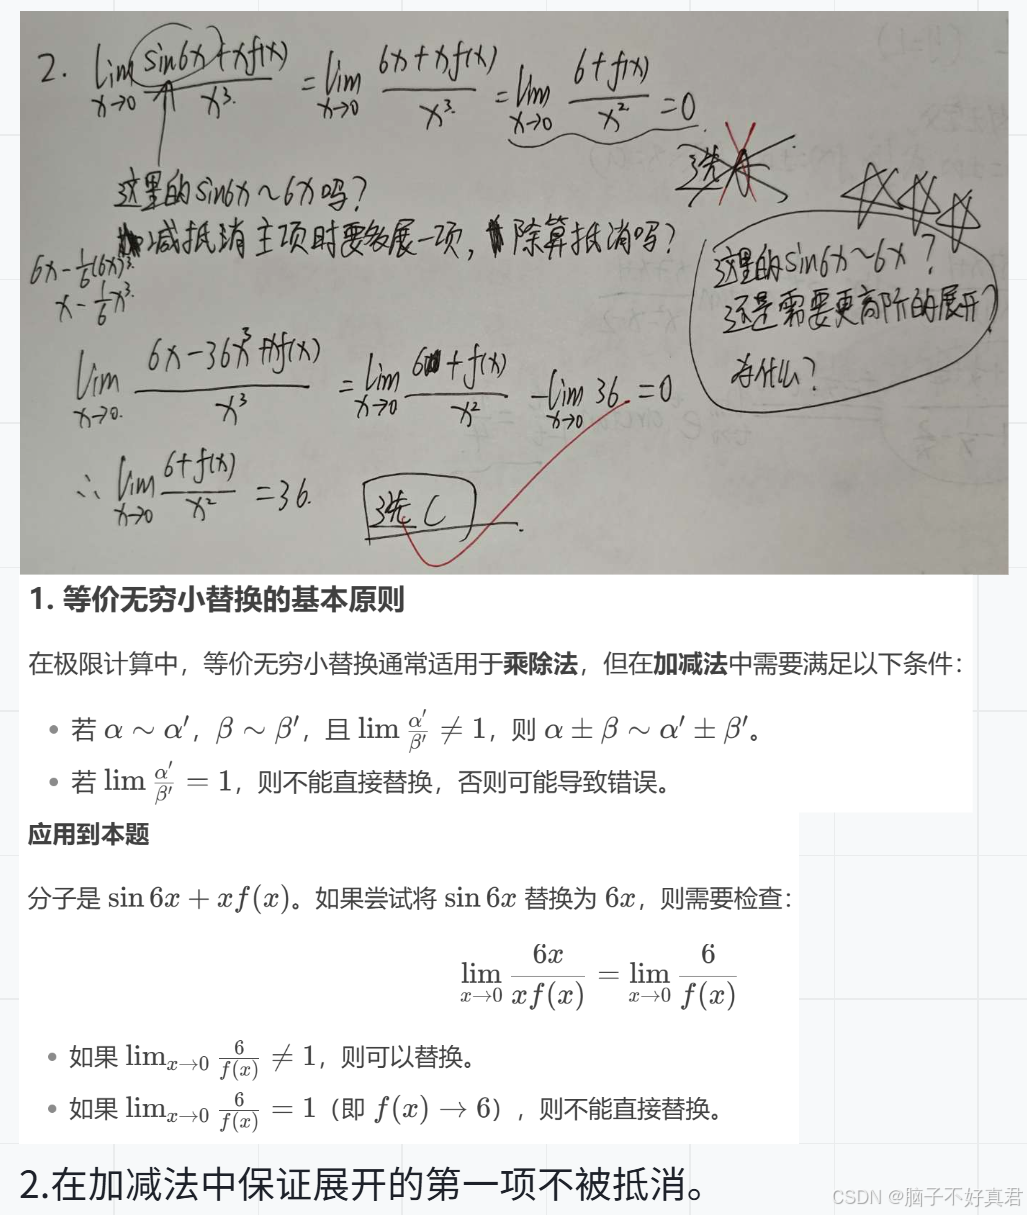 2. lim x→0 (sin6x + xf(x))/x³ = lim x→0 (6x + xf(x))/x³ = lim x→0 (6 + f(x))/x² = 0
选A
这里的sin6x ~ 6x吗?
减抵消主项时要多展一项,除算抵消吗?
6x - 1/6(6x)³
x - 1/6 x³
这里的sin6x~6x?
还是需要更高阶的展开?
为什么?
lim x→0 (6x - 36x³ + xf(x))/x³ = lim x→0 (6 + f(x))/x² - lim x→0 36 = 0
∴ lim x→0 (6 + f(x))/x² = 36.
选C
1. 等价无穷小替换的基本原则
在极限计算中,等价无穷小替换通常适用于乘除法,但在加减法中需要满足以下条件:
• 若 α ∼ α′,β ∼ β′,且 lim α′/β′ ≠ 1,则 α ± β ∼ α′ ± β′。
• 若 lim α′/β′ = 1,则不能直接替换,否则可能导致错误。
应用到本题
分子是 sin 6x + xf(x)。如果尝试将 sin 6x 替换为 6x,则需要检查:
lim x→0 6x/(xf(x)) = lim x→0 6/f(x)
• 如果 lim x→0 6/f(x) ≠ 1,则可以替换。
• 如果 lim x→0 6/f(x) = 1(即 f(x) → 6),则不能直接替换。
2.在加减法中保证展开的第一项不被抵消。
CSDN @脑子不好真君